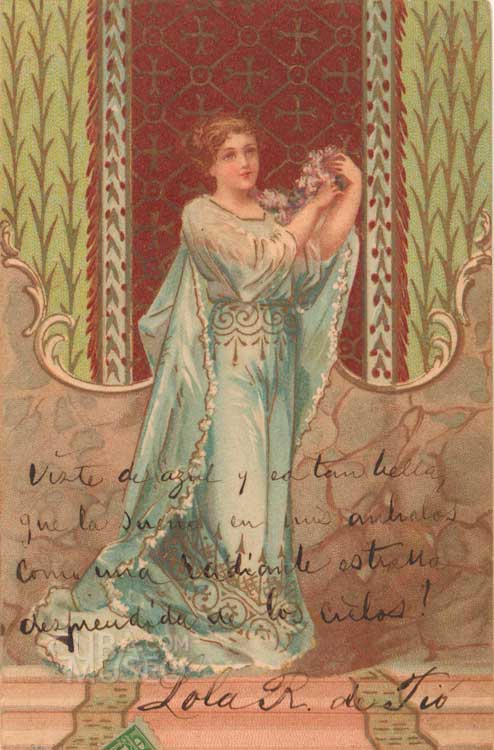 Viste de azul y es tan bella,
que la sueño en mis anhelos
como una radiante estrella
desprendida de los cielos!
Lola R. de Tió